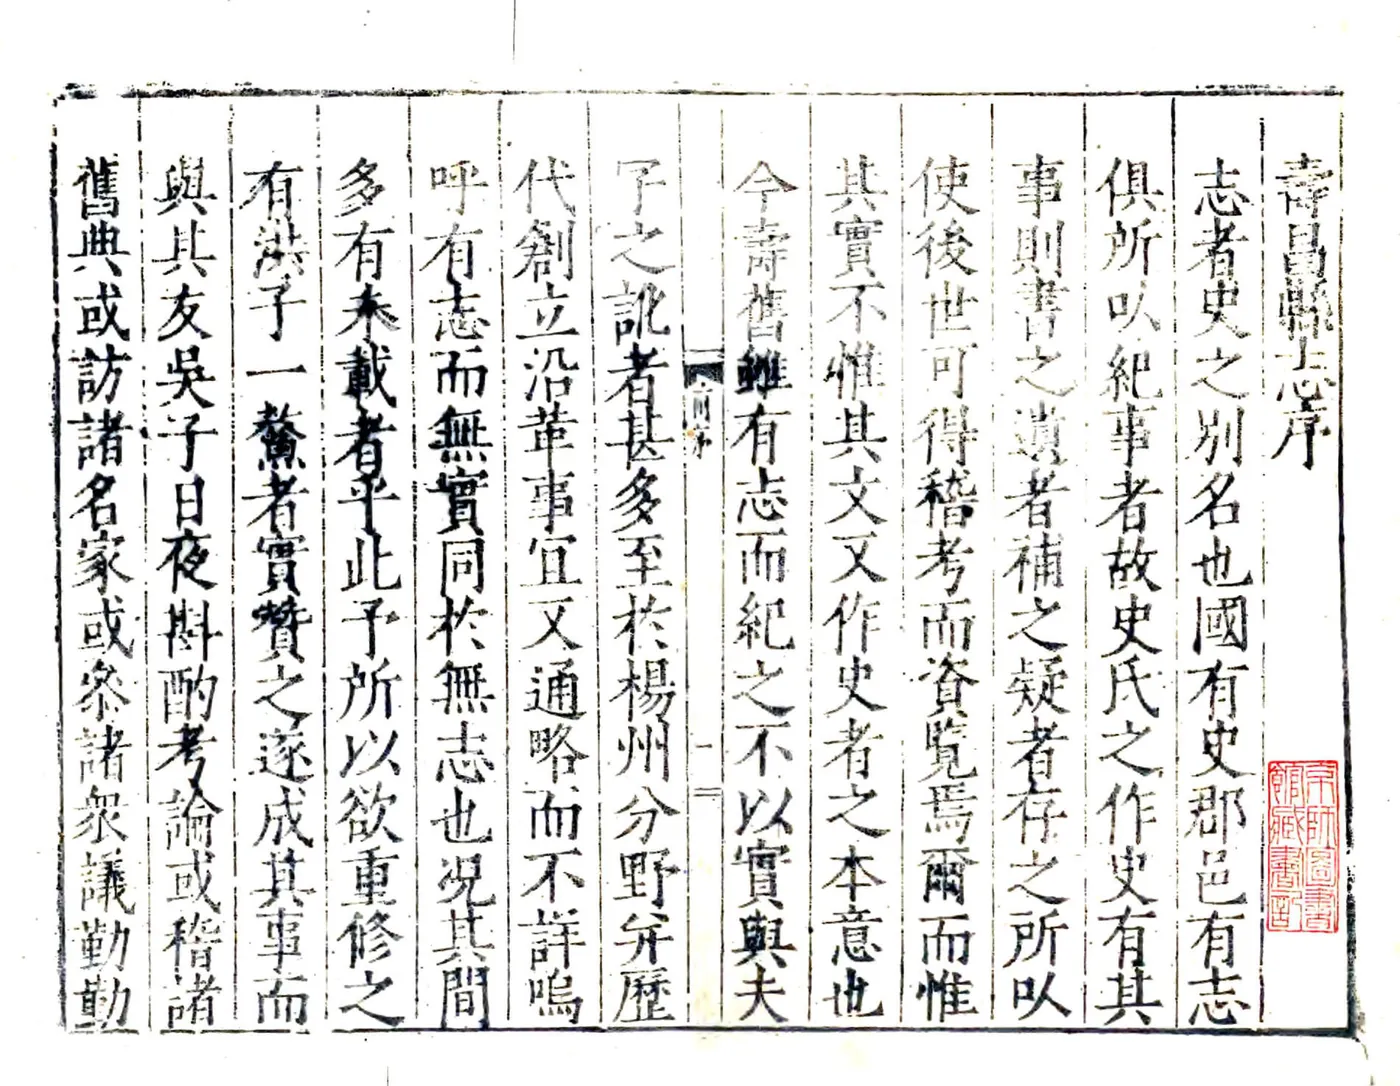 壽昌縣志序
志者史之别名也國有史郡邑有志
俱所㕥紀事者故史氏之作史有其
事則書之遺者補之疑者存之所㕥
使後世可得稽考而資覧焉爾而惟
其實不惟其文又作史者之本意也
今壽舊雖有志而紀之不以實與夫
字之訛者甚多至於楊州分野并歷
代創立沿革事宜又通略而不詳嗚
呼有志而無實同於無志也况其間
多有未載者乎此予所以欲重修之
有洪子一鰲者實贊之遂成其事而
與其友吳子日夜斟酌考論或稽諸
舊典或訪諸名家或叅諸衆議勤勤
一
京師圖書
館藏書記